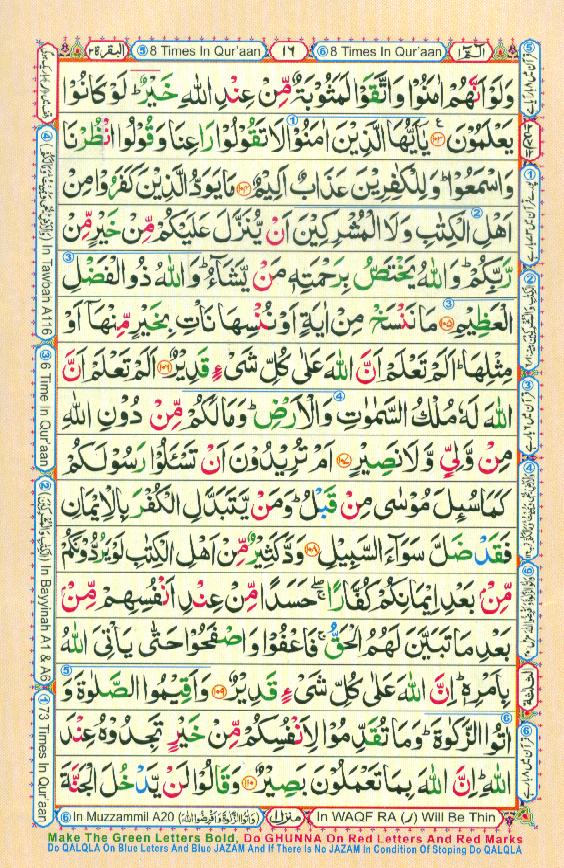 البقرة ٢
⑤ 8 Times In Qur'aan
١٦
⑥ 8 Times In Qur'aan
الٓمّٓ ١
وَلَوْ اَنَّهُمْ اٰمَنُوْا وَاتَّقَوْا لَمَثُوْبَةٌ مِّنْ عِنْدِ اللّٰهِ خَيْرٌؕ لَوْ كَانُوْا
يَعْلَمُوْنَ ۝١٠٣ يٰۤاَيُّهَا الَّذِيْنَ اٰمَنُوْا لَا تَقُوْلُوْا رَاعِنَا وَقُوْلُوا انْظُرْنَا
وَاسْمَعُوْاؕ وَلِلْكٰفِرِيْنَ عَذَابٌ اَلِيْمٌ ۝١٠٤ مَا يَوَدُّ الَّذِيْنَ كَفَرُوْا مِنْ
اَهْلِ الْكِتٰبِ وَلَا الْمُشْرِكِيْنَ اَنْ يُّنَزَّلَ عَلَيْكُمْ مِّنْ خَيْرٍ مِّنْ
رَّبِّكُمْؕ وَاللّٰهُ يَخْتَصُّ بِرَحْمَتِهٖ مَنْ يَّشَآءُؕ وَاللّٰهُ ذُو الْفَضْلِ
الْعَظِيْمِ ۝١٠٥ مَا نَنْسَخْ مِنْ اٰيَةٍ اَوْ نُنْسِهَا نَاْتِ بِخَيْرٍ مِّنْهَاۤ اَوْ
مِثْلِهَاؕ اَلَمْ تَعْلَمْ اَنَّ اللّٰهَ عَلٰى كُلِّ شَىْءٍ قَدِيْرٌ ۝١٠٦ اَلَمْ تَعْلَمْ اَنَّ
اللّٰهَ لَهٗ مُلْكُ السَّمٰوٰتِ وَالْاَرْضِؕ وَمَا لَكُمْ مِّنْ دُوْنِ اللّٰهِ
مِنْ وَّلِىٍّ وَّلَا نَصِيْرٍ ۝١٠٧ اَمْ تُرِيْدُوْنَ اَنْ تَسْئَلُوْا رَسُوْلَكُمْ
كَمَا سُئِلَ مُوْسٰى مِنْ قَبْلُؕ وَمَنْ يَّتَبَدَّلِ الْكُفْرَ بِالْاِيْمَانِ
فَقَدْ ضَلَّ سَوَآءَ السَّبِيْلِ ۝١٠٨ وَدَّ كَثِيْرٌ مِّنْ اَهْلِ الْكِتٰبِ لَوْ يَرُدُّوْنَكُمْ
مِّنْۢ بَعْدِ اِيْمَانِكُمْ كُفَّارًاۖۚ حَسَدًا مِّنْ عِنْدِ اَنْفُسِهِمْ مِّنْۢ
بَعْدِ مَا تَبَيَّنَ لَهُمُ الْحَقُّۚ فَاعْفُوْا وَاصْفَحُوْا حَتّٰى يَاْتِىَ اللّٰهُ
بِاَمْرِهٖؕ اِنَّ اللّٰهَ عَلٰى كُلِّ شَىْءٍ قَدِيْرٌ ۝١٠٩ وَاَقِيْمُوا الصَّلٰوةَ وَ
اٰتُوا الزَّكٰوةَؕ وَمَا تُقَدِّمُوْا لِاَنْفُسِكُمْ مِّنْ خَيْرٍ تَجِدُوْهُ عِنْدَ
اللّٰهِؕ اِنَّ اللّٰهَ بِمَا تَعْمَلُوْنَ بَصِيْرٌ ۝١١٠ وَقَالُوْا لَنْ يَّدْخُلَ الْجَنَّةَ
④ In Tawbah A116
③ 6 Time In Qur'aan
② In Bayyinah A1 & A6
① 73 Times In Qur'aan
⑥ In Muzzammil A20
منزل ١
In WAQF RA (ر) Will Be Thin
Make The Green Letters Bold, Do GHUNNA On Red Letters And Red Marks
Do QALQLA On Blue Letters And Blue JAZAM And If There Is No JAZAM In Condition Of Stoping Do QALQLA